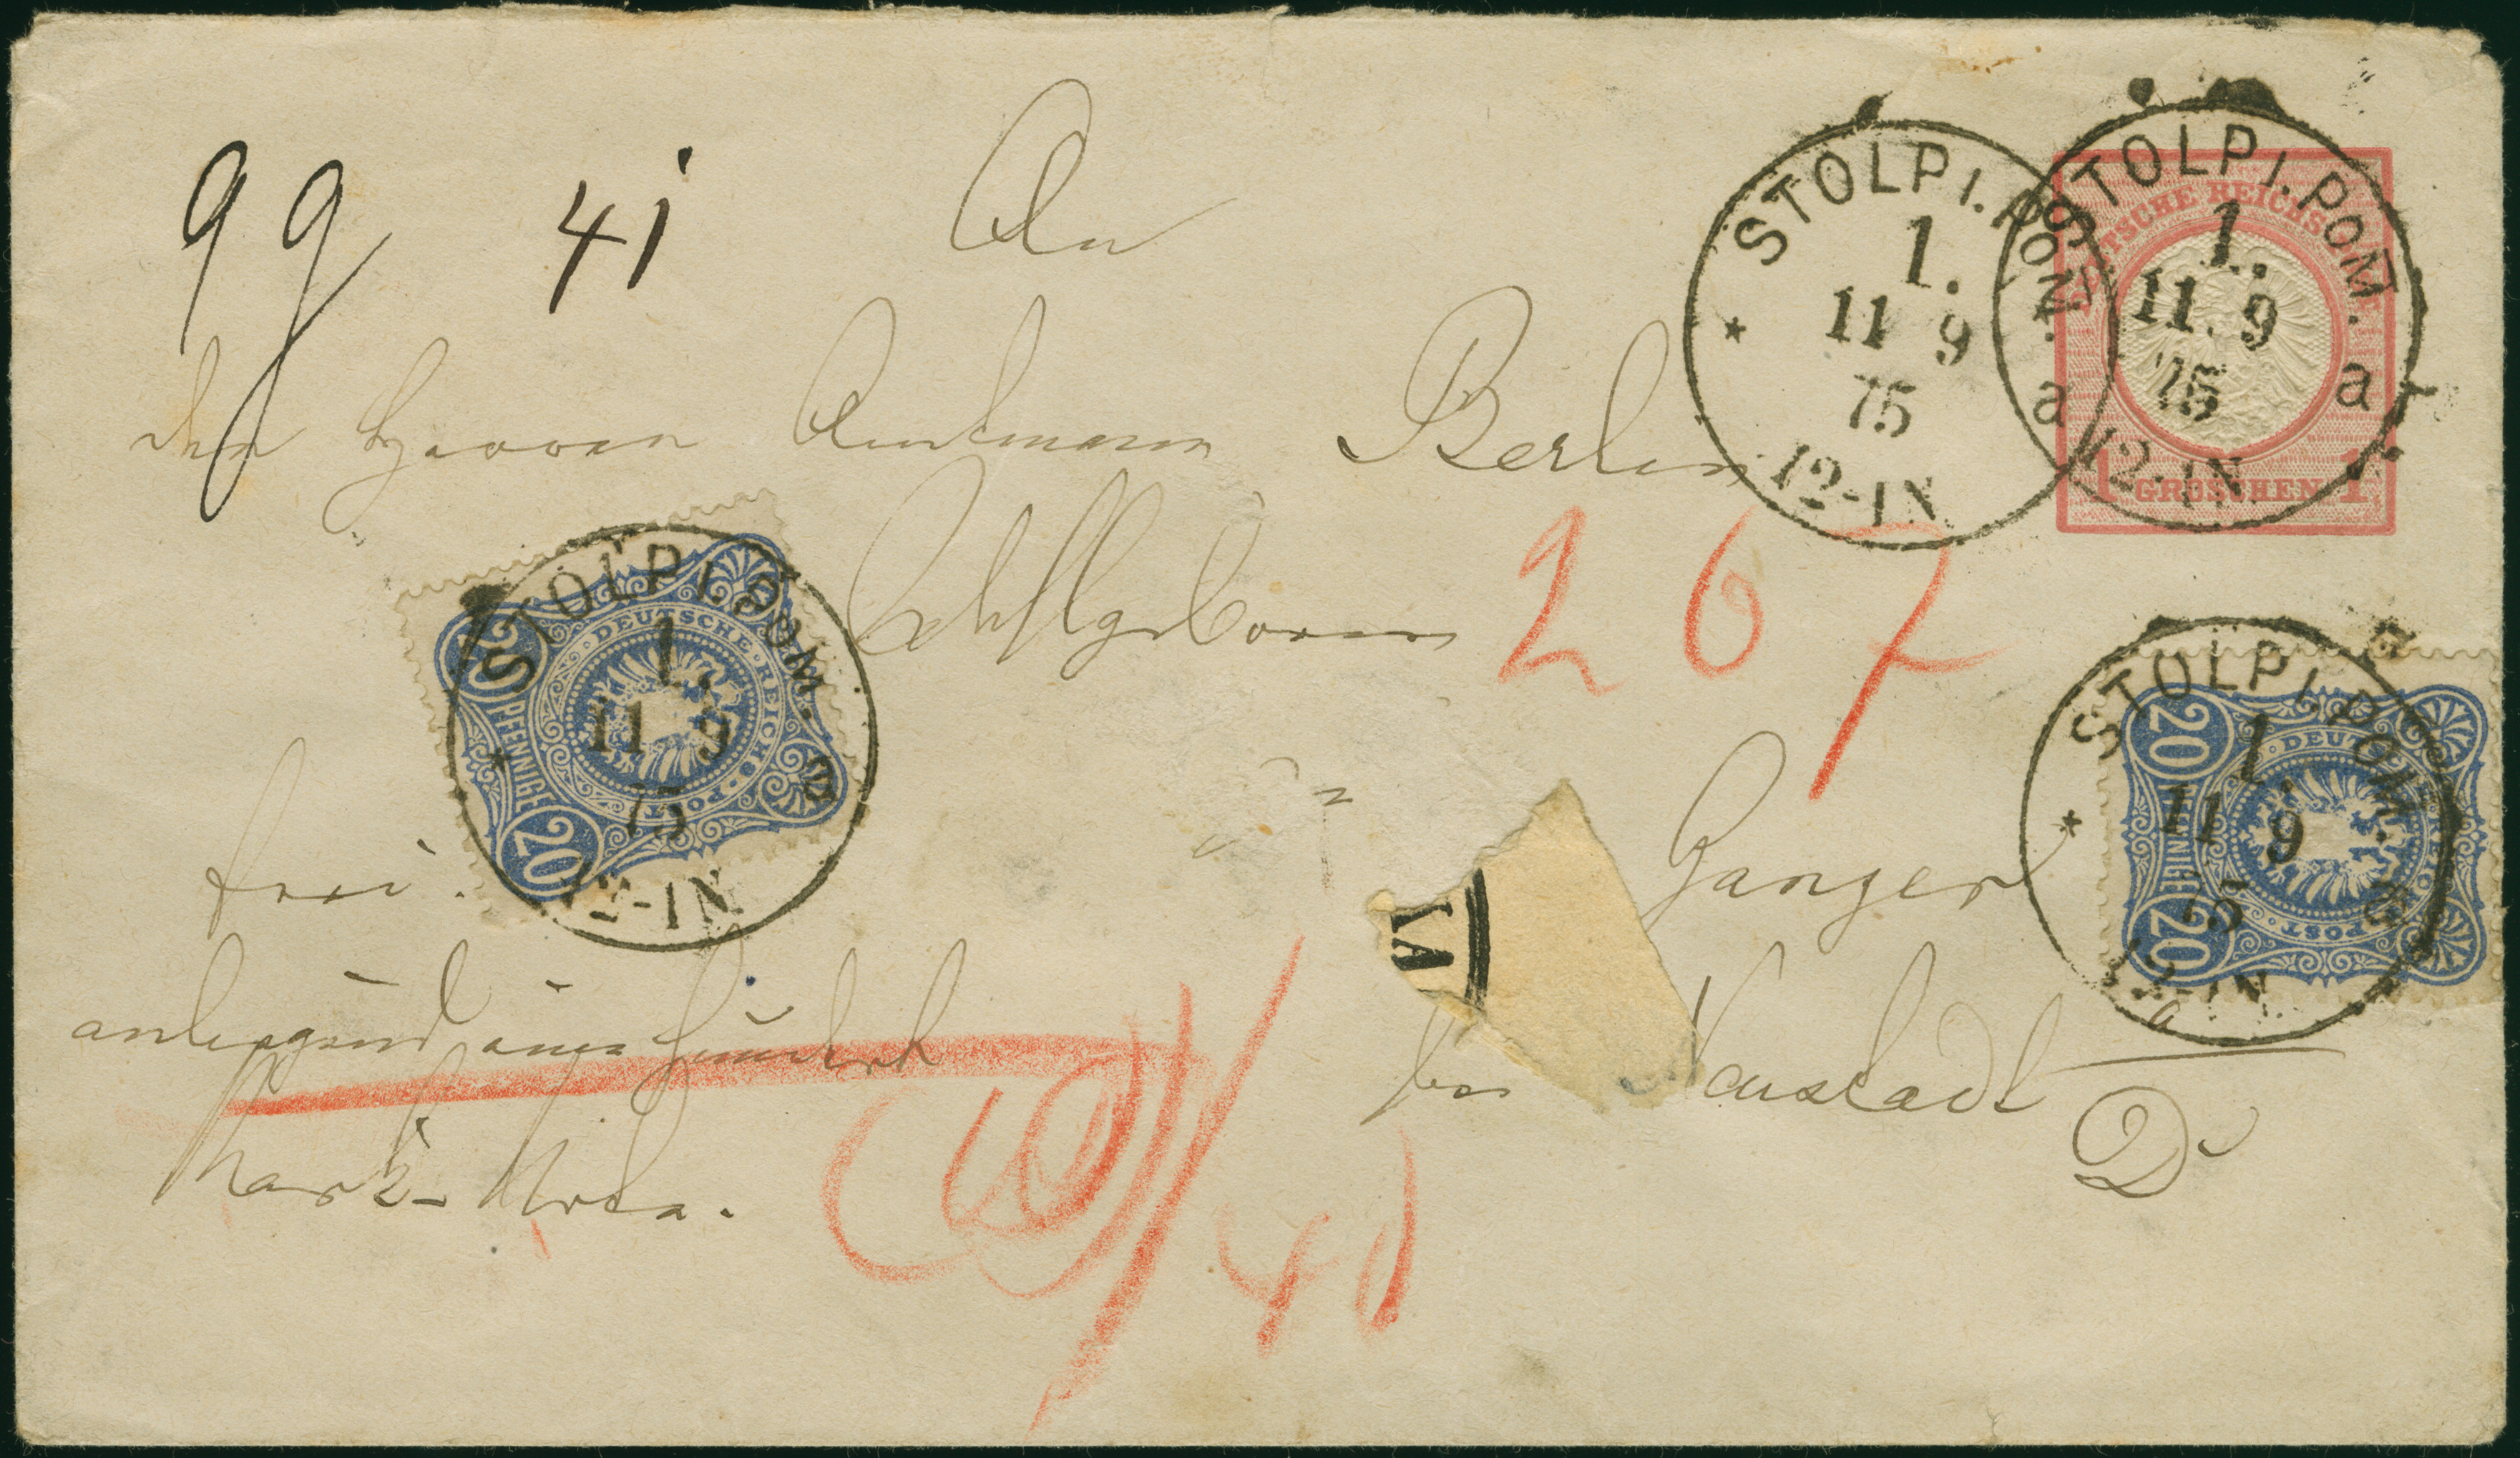 9 g 41
An
den Herrn Amtmann Berlin
267
Ganzer
frei.
anliegend einhundert
bei Neustadt
Mark
D
40
STOLP I. POM.
1.
11 9
75
12-1N.
a
STOLP I. POM.
1.
11. 9
75
12-1N.
a
DEUTSCHE REICHSPOST
1 GROSCHEN 1
STOLP I. POM.
1.
11 9
75
12-1N.
DEUTSCHE REICHS-POST
20 PFENNIGE 20
STOLP I. POM.
1.
11 9
75
12-1N.
20 PFENNIGE 20